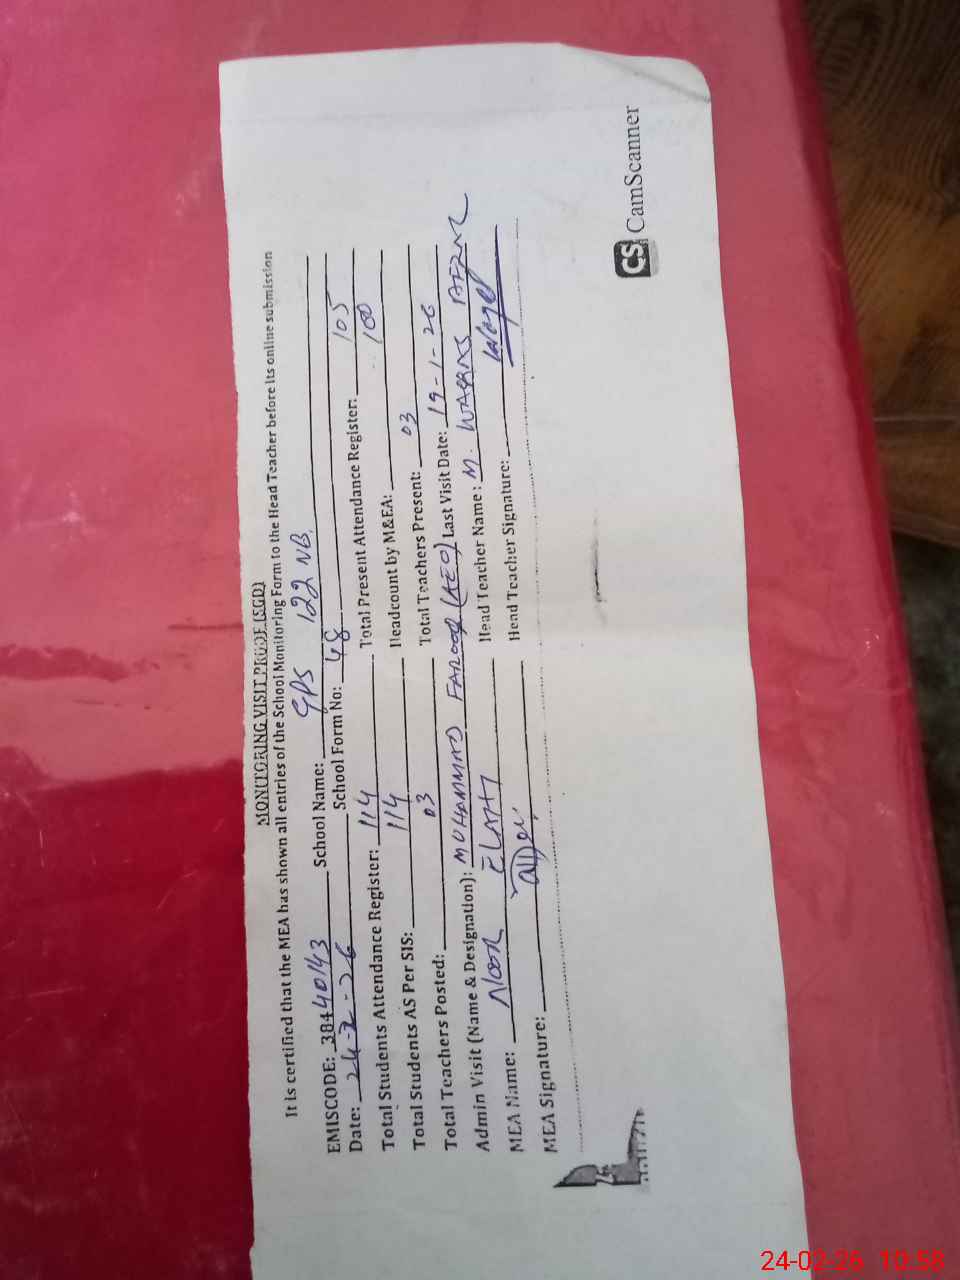 MONITORING VISIT PROOF (SGD)
It is certified that the MEA has shown all entries of the School Monitoring Form to the Head Teacher before its online submission
EMISCODE: 38440143 School Name: GPS 122 NB
Date: 24-2-26 School Form No: 48
Total Students Attendance Register: 114 Total Present Attendance Register: 105
Total Students AS Per SIS: 114 Headcount by M&EA: 100
Total Teachers Posted: 03 Total Teachers Present: 03
Admin Visit (Name & Designation): MUHAMMAD FAROOQ (AEO) Last Visit Date: 19-1-26
MEA Name: NOOR ELAHI Head Teacher Name: M. WAQAS AFZAL
MEA Signature: Head Teacher Signature:
CS CamScanner
24-02-26 10:58